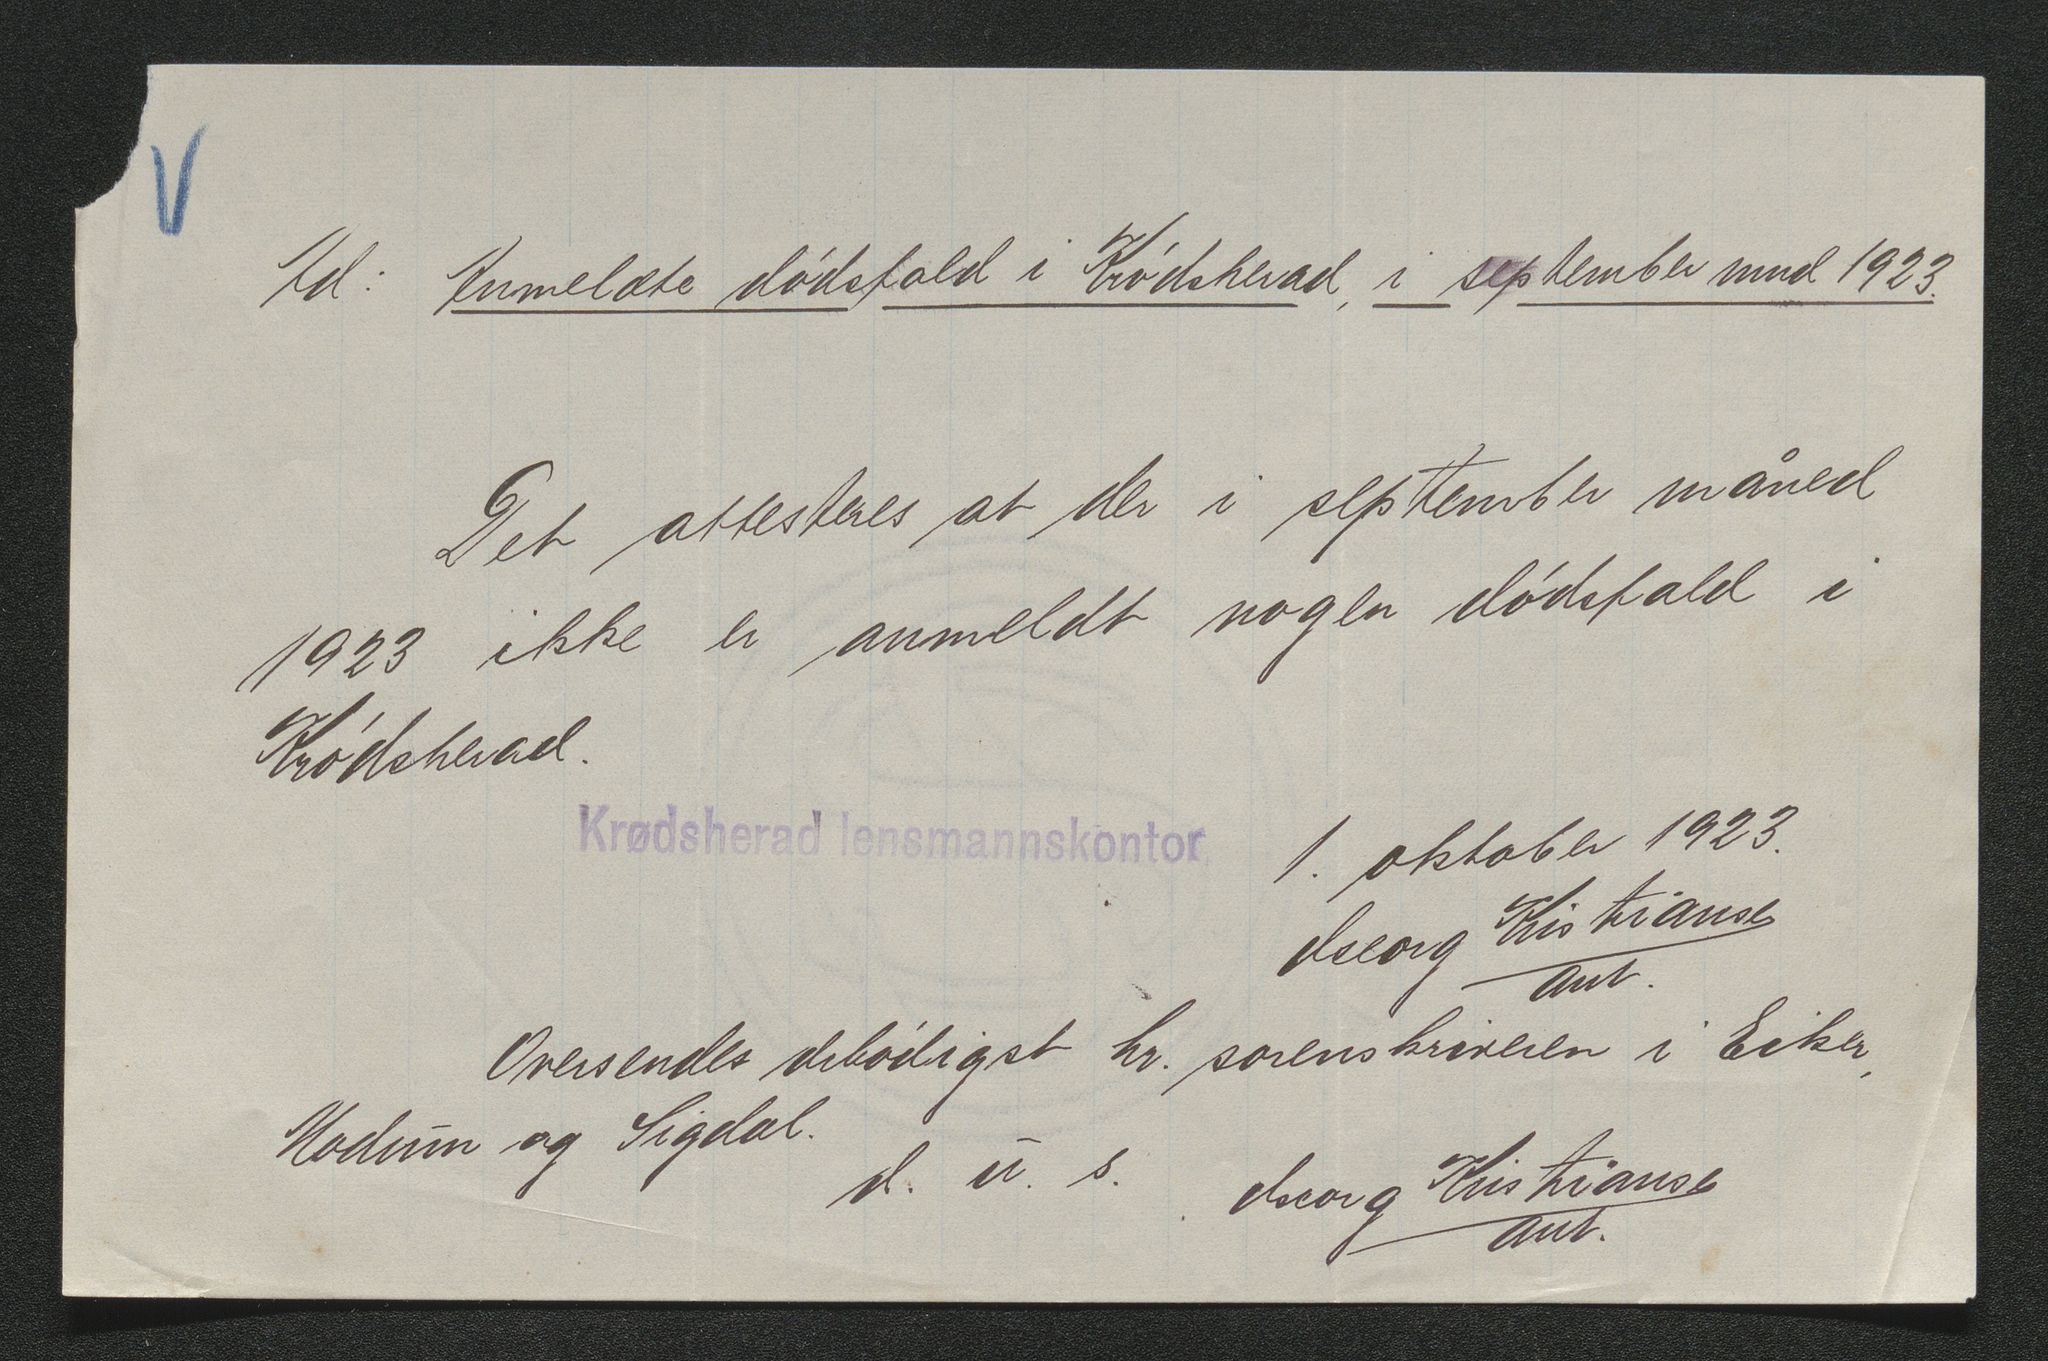 V
Ad: Anmeldte dødsfald i Krødsherad, i september mnd 1923.
Det attesteres at der i september måned
1923 ikke er anmeldt nogen dødsfald i
Krødsherad.
Krødsherad lensmannskontor, 1. oktober 1923.
Georg Kristianse
aut.
Oversendes ærbødigst hr. sorenskriveren i Eiker,
Modum og Sigdal.
d. u. s.
Georg Kristianse
aut.